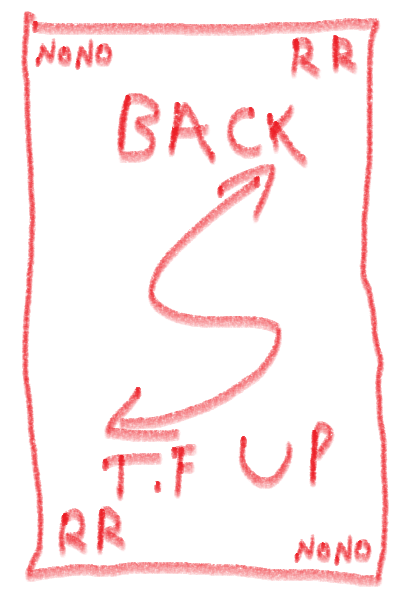 NONO RR
BACK
T.F UP
RR
NONO